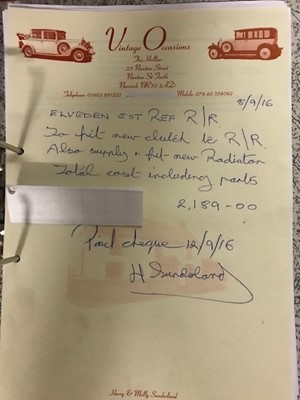 Vintage Occasions
The Hollies
25 Newton Street
Newton St Faith
Norwich NR10 3AD
Telephone 01603
Mobile: 078 60
8/9/16
ELVEDEN EST REF R/R
To fit new clutch to R/R.
Also supply + fit new Radiator
Total cost including parts
2,189-00
Paid cheque 12/9/16
H Sunderland
Harry & Molly Sunderland